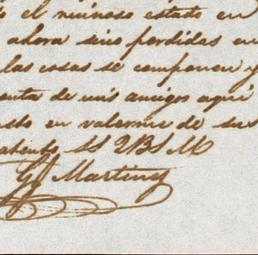 el ruinoso estado en
ahora sino perdidas en
las cosas se componen y
uenta de mis amigos aquí
sto en valerme de sus
atento SS 2BSM
G Martinez